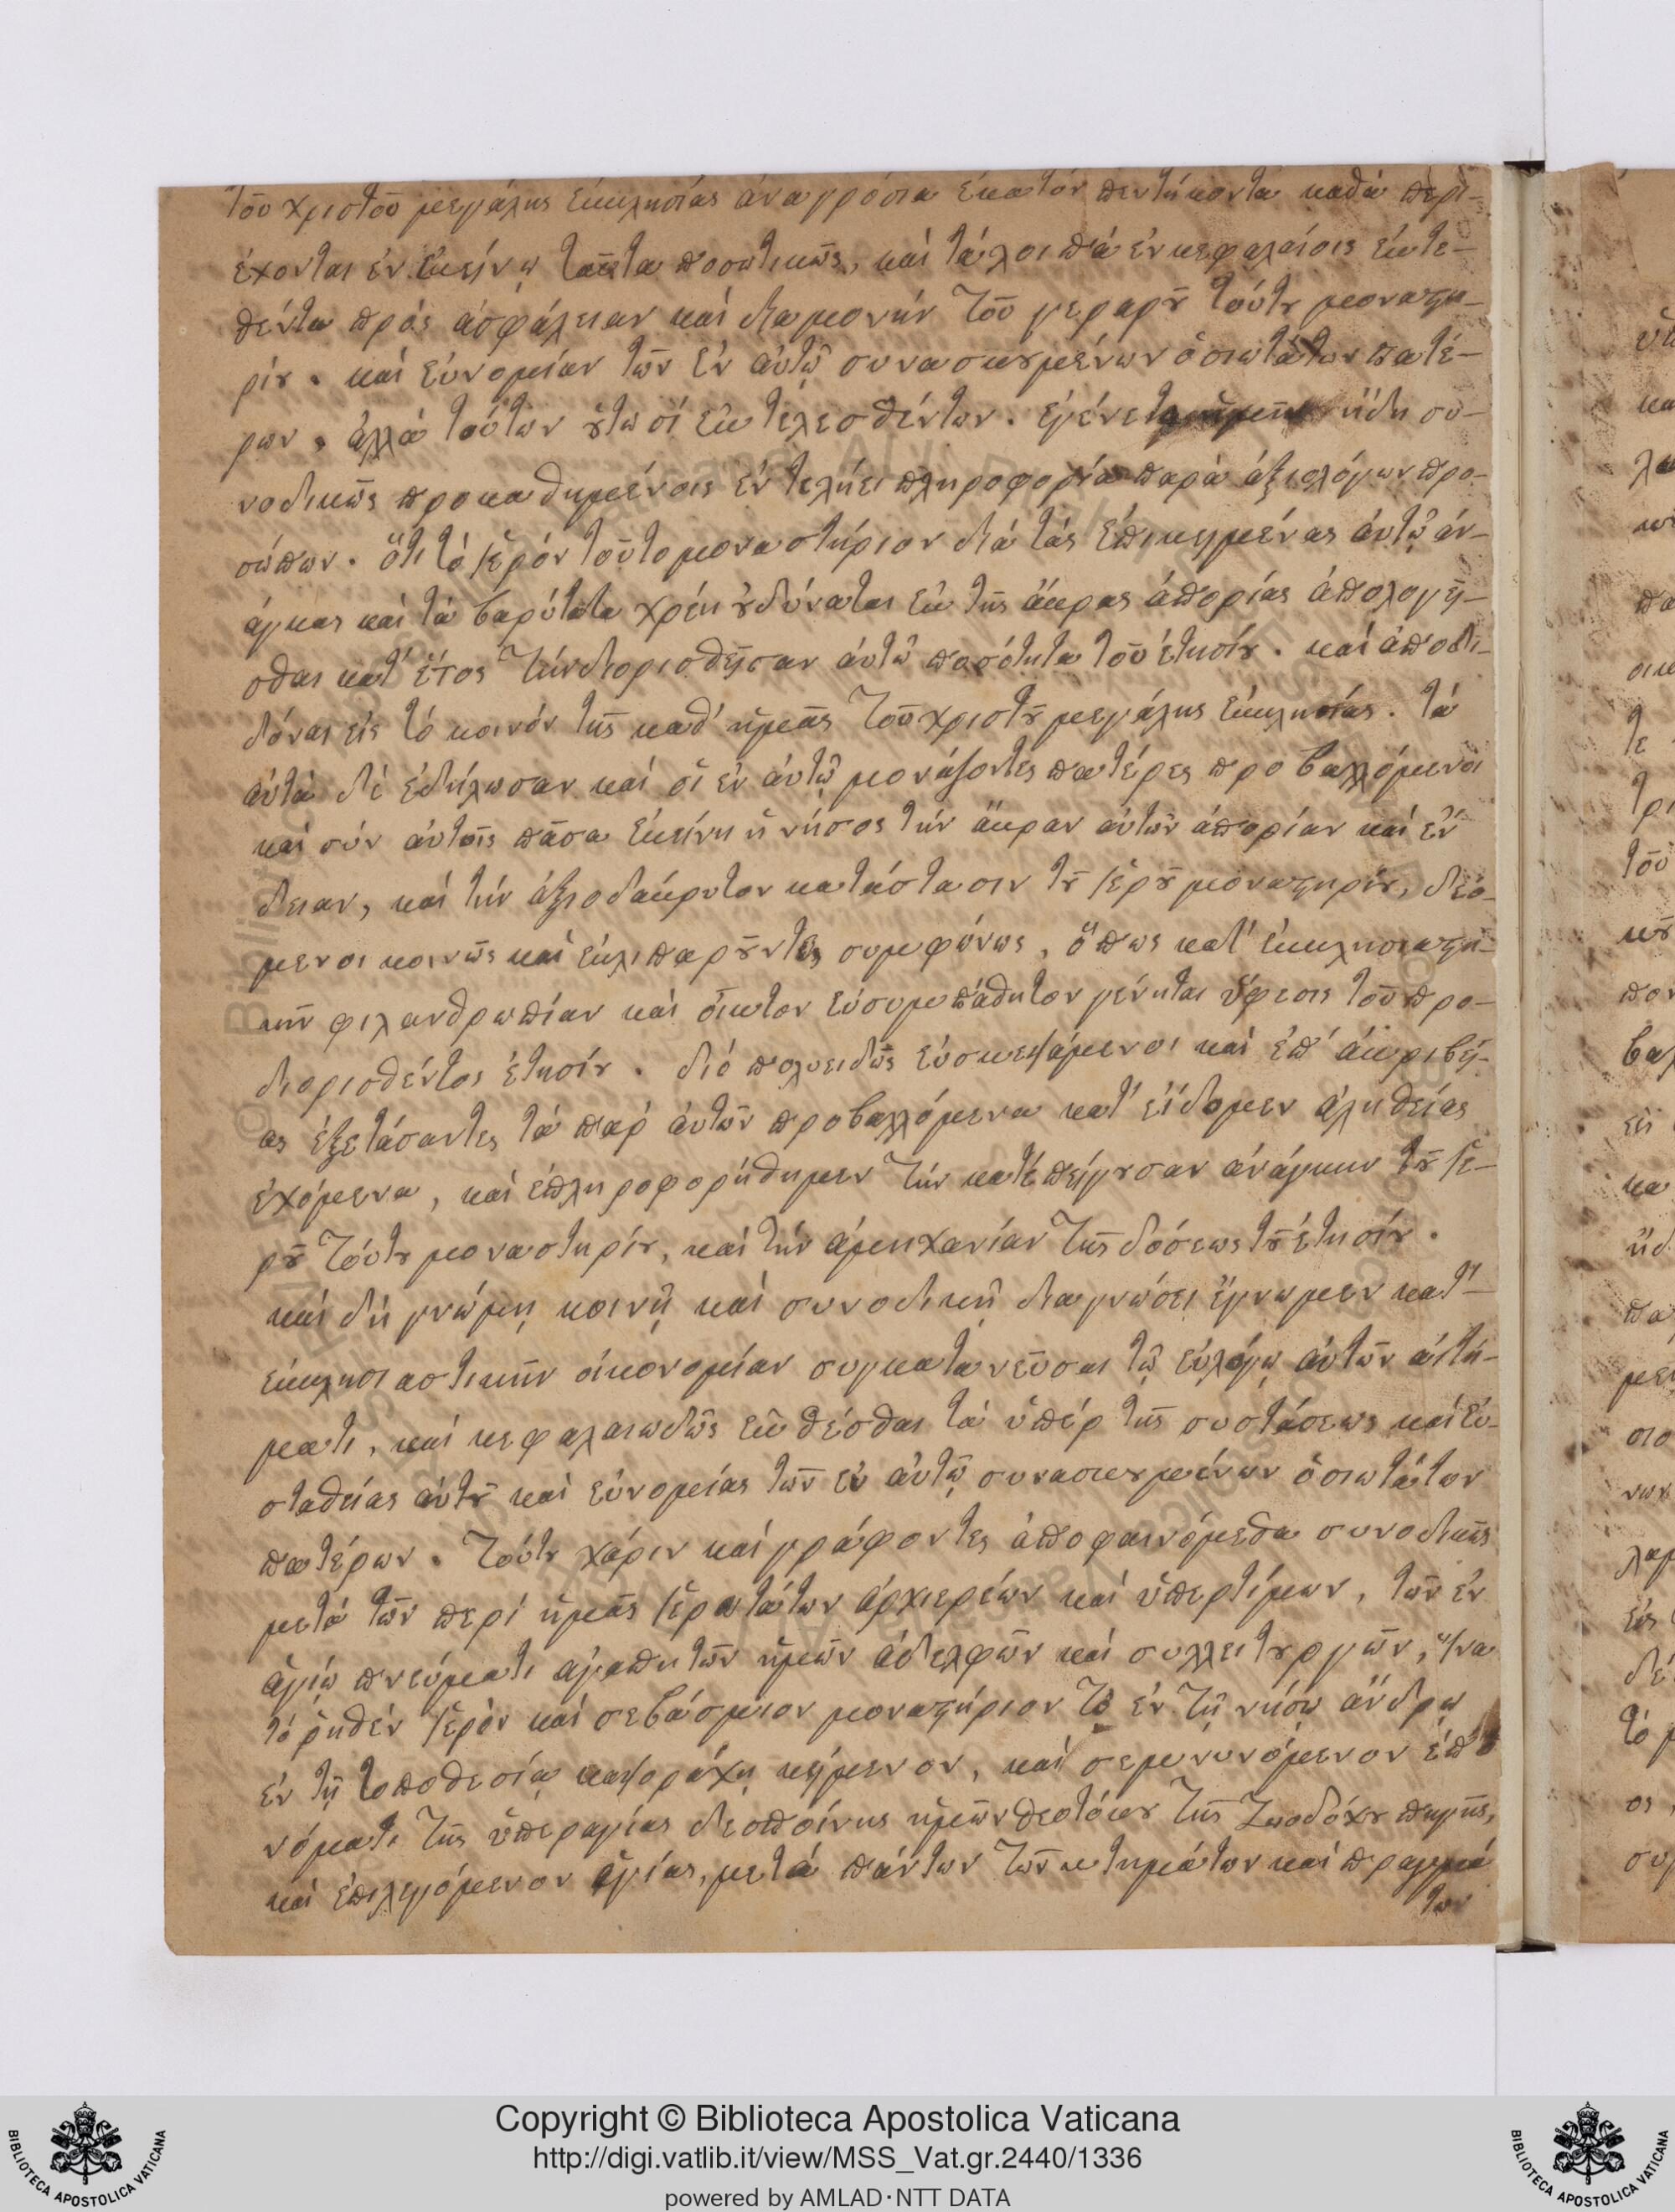 τοῦ χριστοῦ μεγάλης ἐκκλησίας ἀναγρόσια ἑκατόν πεντήκοντα καθά περι-
έχονται ἐν ἐκείνῳ ταῦτα ποσωτικῶς, καί τἄλοιπά ἐν κεφαλαίοις ἐκτε-
θέντα πρός ἀσφάλειαν καί διαμονήν τοῦ γεραροῦ τούτου μοναστη-
ρίου. καί εὐνομίαν τῶν ἐν αὐτῷ συνασκουμένων ὁσιωτάτων πατέ-
ρων. ἀλλά τούτων οὑτωσί ἐκτελεσθέντων. ἐγένετο ἡμῖν ἤδη συ-
νοδικῶς προκαθημένοις ἐν τελήει πληροφορία παρά ἀξιολόγων προ-
σώπων. ὅτι τό ἱερόν τοῦτο μοναστήριον διά τάς ἐπικειμένας αὐτῷ ἀν-
άγκας καί τά βαρύτατα χρέη οὐ δύναται ἐκ τῆς ἄκρας ἀπορίας ἀπολογεῖ-
σθαι κατ' ἔτος τήν διορισθεῖσαν αὐτῷ ποσότητα τοῦ ἐτησίου. καί ἀποδι-
δόναι εἰς τό κοινόν τῆς καθ' ἡμᾶς τοῦ χριστοῦ μεγάλης ἐκκλησίας. τά
αὐτά δέ ἐδήλωσαν καί οἱ ἐν αὐτῷ μονάζοντες πατέρες προβαλλόμενοι
καί σύν αὐτοῖς πᾶσα ἐκείνη ἡ νήσος τήν ἄκραν αὐτῶν ἀπορίαν καί ἔν
δειαν, καί τήν ἀξιοδάκρυτον κατάστασιν τοῦ ἱεροῦ μοναστηρίου, δεό-
μενοι κοινῶς καί ἐκλιπαροῦντες συμφώνως, ὅπως κατ' ἐκκλησιαστι-
κήν φιλανθρωπίαν καί οἶκτον εὐσυμπάθητον γένηται ὕφεσις τοῦ προ-
διορισθέντος ἐτησίου. διό πολυειδῶς ἐυσκεψάμενοι καί ἐπ' ἀκριβεί-
ας ἐξετάσαντες τά παρ' αὐτῶν προβαλλόμενα κατ' εἴδομεν ἀληθείας
ἐχόμενα, καί ἐπληροφορήθημεν τήν κατεπείγουσαν ἀνάγκην τοῦ ἱε-
ροῦ τούτου μοναστηρίου, καί τήν ἀμηχανίαν τῆς δόσεως τοῦ ἐτησίου.
καί δή γνώμῃ κοινῇ καί συνοδικῇ διαγνώσει ἔγνωμεν κατ'-
ἐκκλησιαστικήν οἰκονομίαν συγκατανεῦσαι τῷ εὐλόγῳ αὐτῶν αἰτή-
ματι, καί κεφαλαιωδῶς ἐκθέσθαι τά ὑπέρ τῆς συστάσεως καί εὐ-
σταθείας αὐτοῦ καί εὐνομίας τῶν ἐν αὐτῷ συνασκουμένων ὁσιωτάτων
πατέρων. τούτου χάριν καί γράφοντες ἀποφαινόμεθα συνοδικῶς
μετά τῶν περί ἡμᾶς ἱερωτάτων ἀρχιερέων καί ὑπερτίμων, τῶν ἐν
ἁγίῳ πνεύματι ἀγαπητῶν ἡμῶν ἀδελφῶν καί συλλειτουργῶν, ἵνα
τό ῥηθέν ἱερόν καί σεβάσμιον μοναστήριον τό ἐν τῇ νήσῳ ἄνδρῳ
ἐν τῇ τοποθεσίᾳ καψοράχῃ κείμενον, καί σεμνυνόμενον ἐπ' ὀ
νόματι τῆς ὑπεραγίας δεσποίνης ἡμῶν θεοτόκου τῆς Ζωοδόχου πηγῆς,
καί ἐπιλεγόμενον ἁγίας, μετά πάντων τῶν κτημάτων καί πραγμά
των
Copyright © Biblioteca Apostolica Vaticana
http://digi.vatlib.it/view/MSS_Vat.gr.2440/1336
powered by AMLAD·NTT DATA
BIBLIOTECA APOSTOLICA VATICANA
BIBLIOTECA APOSTOLICA VATICANA